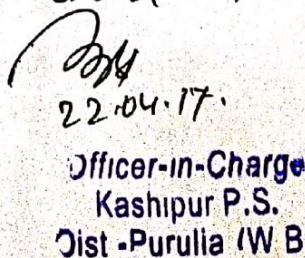 22.04.17.
Officer-in-Charge
Kashipur P.S.
Dist -Purulia (W B